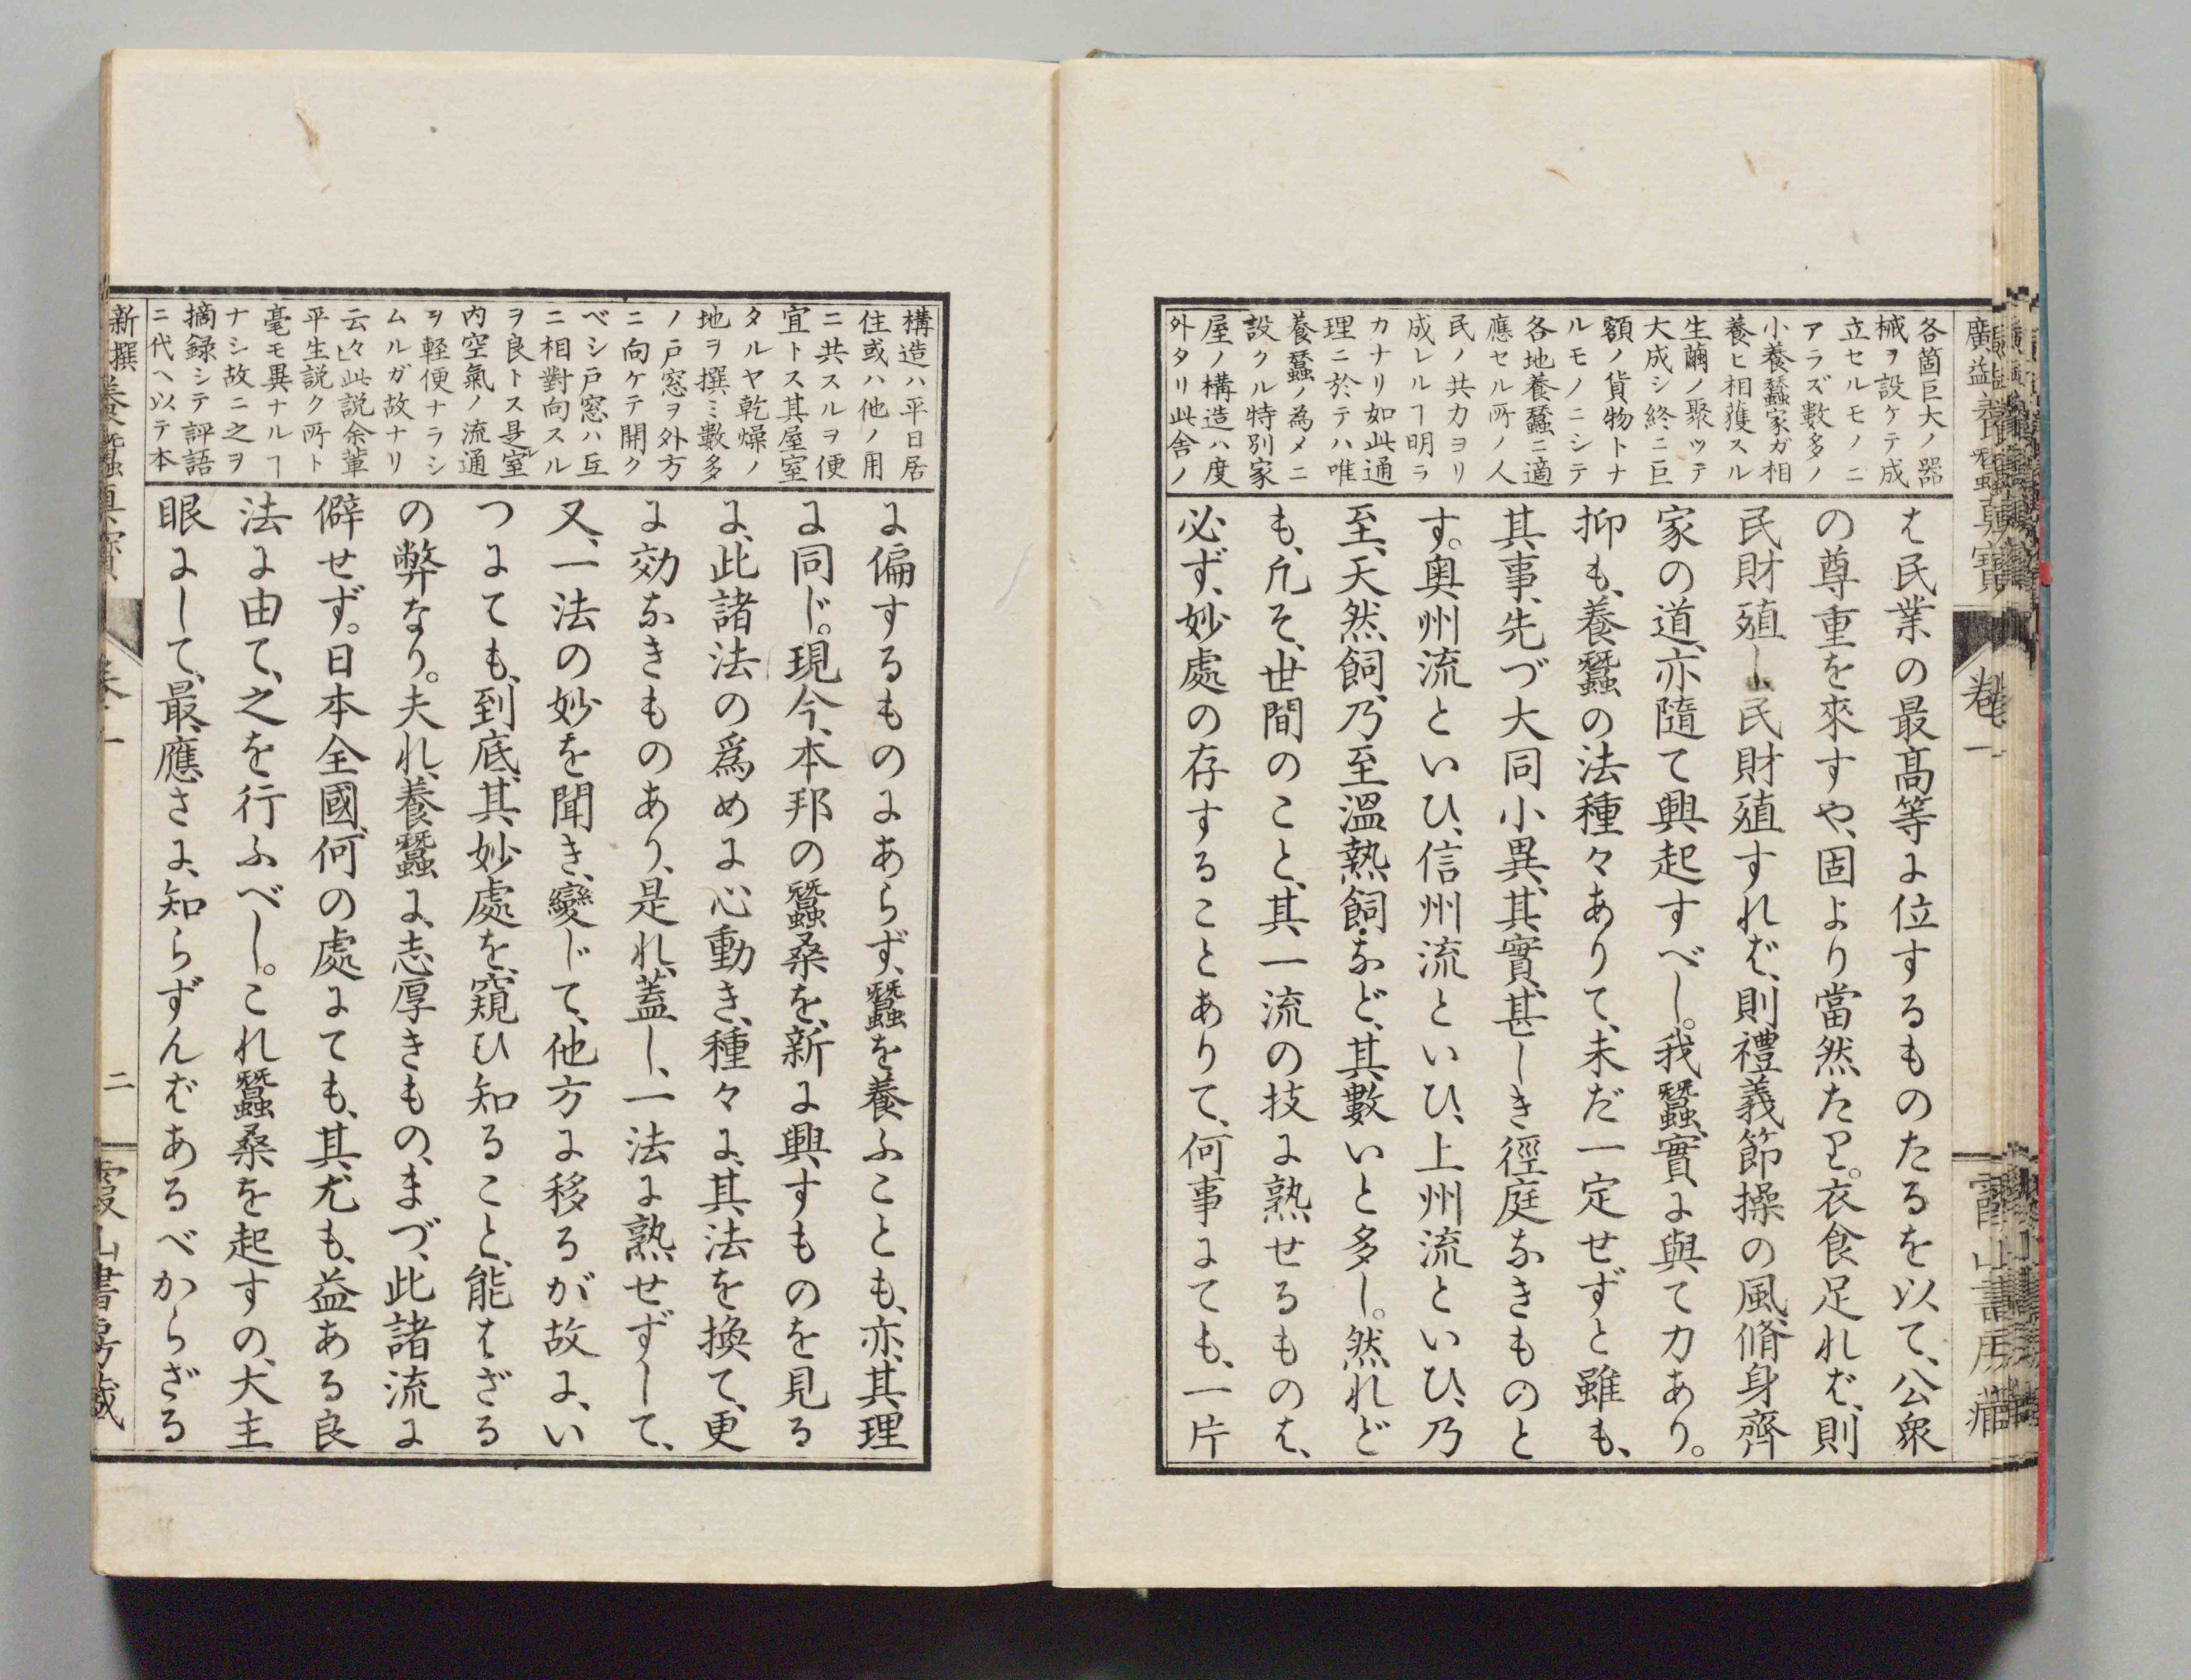 廣益養蠶眞寶
卷一
各箇巨大ノ器
械ヲ設ケテ成
立セルモノニ
アラズ數多ノ
小養蠶家ガ相
養ヒ相獲スル
生繭ノ聚ッテ
大成シ終ニ巨
額ノ貨物トナ
ルモノニシテ
各地養蠶ニ適
應セル所ノ人
民ノ共力ヨリ
成レルヿ明ラ
カナリ如此通
理ニ於テハ唯
養蠶ノ為メニ
設クル特別家
屋ノ構造ハ度
外タリ此舎ノ
は民業の最高等に位するものたるを以て、公衆
の尊重を來すや、固より當然たり。衣食足れば、則
民財殖し、民財殖すれば、則禮義節操の風、脩身齊
家の道、亦隨て興起すべし。我蠶、實に與て力あり。
抑も、養蠶の法種々ありて、未だ一定せずと雖も、
其事、先づ大同小異、其實、甚しき徑庭なきものと
す。奥州流といひ、信州流といひ、上州流といひ、乃
至、天然飼、乃至溫熱飼など、其數いと多し。然れど
も、凡そ、世間のこと、其一流の技に熟せるものは、
必ず、妙處の存することありて、何事にても、一片
構造ハ平日居
住或ハ他ノ用
ニ共スルヲ便
宜トス其屋室
タルヤ乾燥ノ
地ヲ撰ミ數多
ノ戸窓ヲ外方
ニ向ケテ開ク
ベシ戸窓ハ互
ニ相對向スル
ヲ良トス是レ室
内空氣ノ流通
ヲ軽便ナラシ
ムルガ故ナリ
云々此説余輩
平生説ク所ト
毫モ異ナルヿ
ナシ故ニ之ヲ
摘録シテ評語
ニ代ヘ以テ本
に偏するものにあらず、蠶を養ふことも、亦、其理
に同じ。現今、本邦の蠶桑を、新に興すものを見る
に、此諸法の爲めに心動き、種々に、其法を換て、更
に効なきものあり、是れ、蓋し、一法に熟せずして、
又、一法の妙を聞き、變じて、他方に移るが故に、い
つにても、到底、其妙處を、窺ひ知ること、能はざる
の弊なり。夫れ、養蠶に、志厚きもの、まづ、此諸流に
僻せず。日本全國、何の處にても、其尤も、益ある良
法に由て、之を行ふべし。これ蠶桑を起すの、大主
眼にして、最、應さに、知らずんばあるべからざる
新撰養蠶眞寶
卷一
二
霞山書房藏